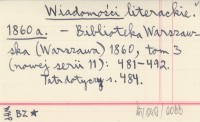 Wiadomości literackie."
1860 a. – Biblioteka Warszaw-
ska (Warszawa) 1860, tom 3
(nowej serii 11): 481-492.
Tatr dotyczy s. 484.
BZ ★